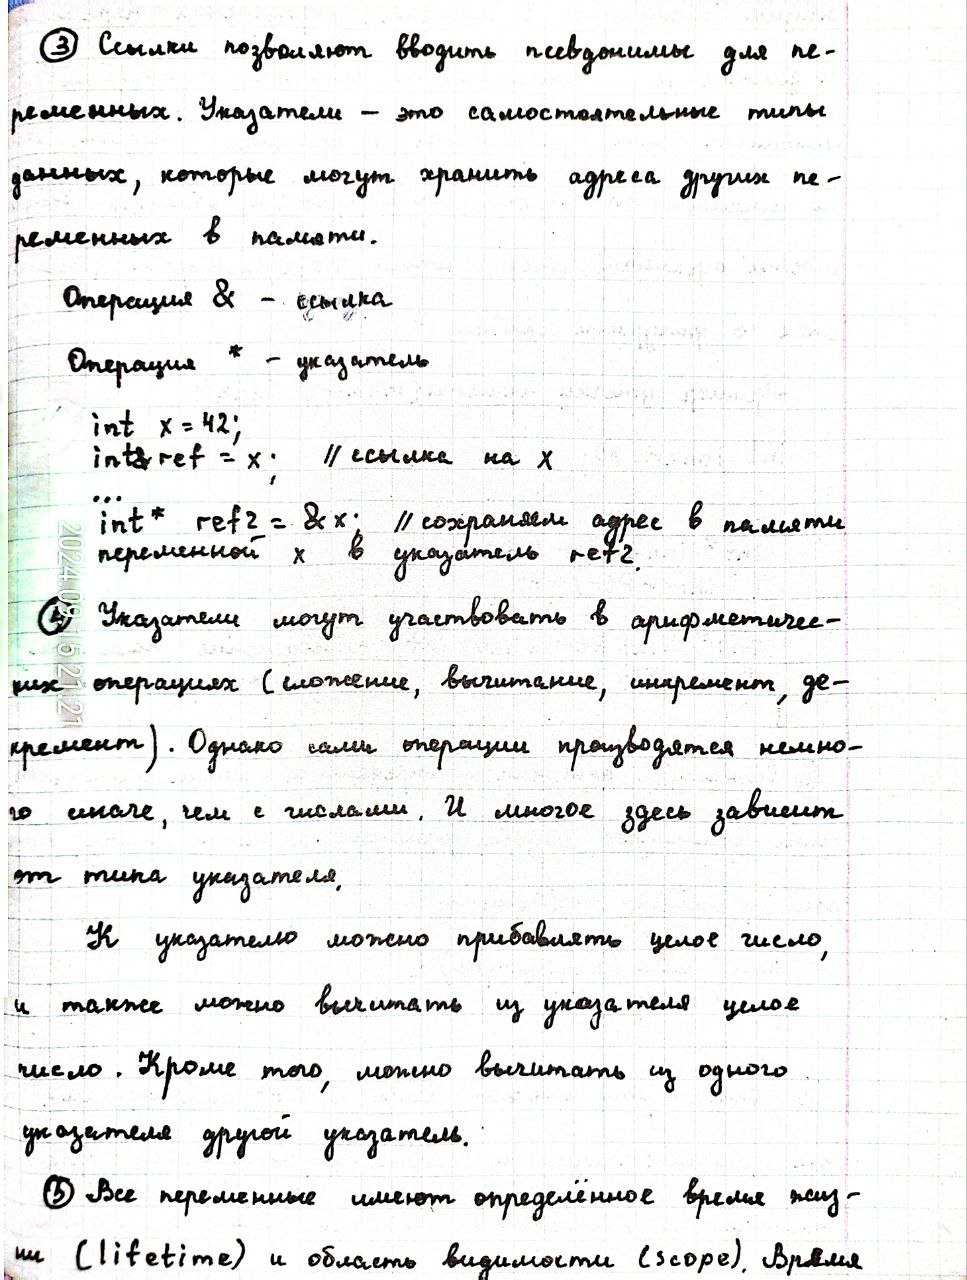 ③ Ссылки позволяют вводить псевдонимы для пе-
ременных. Указатели – это самостоятельные типы
данных, которые могут хранить адреса других пе-
ременных в памяти.
Операция & – ссылка
Операция * – указатель
int x = 42;
int& ref = x; // ссылка на x
...
int* ref2 = &x; // сохраняем адрес в памяти
переменной x в указатель ref2.
④ Указатели могут участвовать в арифметичес-
ких операциях (сложение, вычитание, инкремент, де-
кремент). Однако сами операции производятся немно-
го иначе, чем с числами. И многое здесь зависит
от типа указателя.
К указателю можно прибавлять целое число,
и также можно вычитать из указателя целое
число. Кроме того, можно вычитать из одного
указателя другой указатель.
⑤ Все переменные имеют определённое время жиз-
ни (lifetime) и область видимости (scope). Время